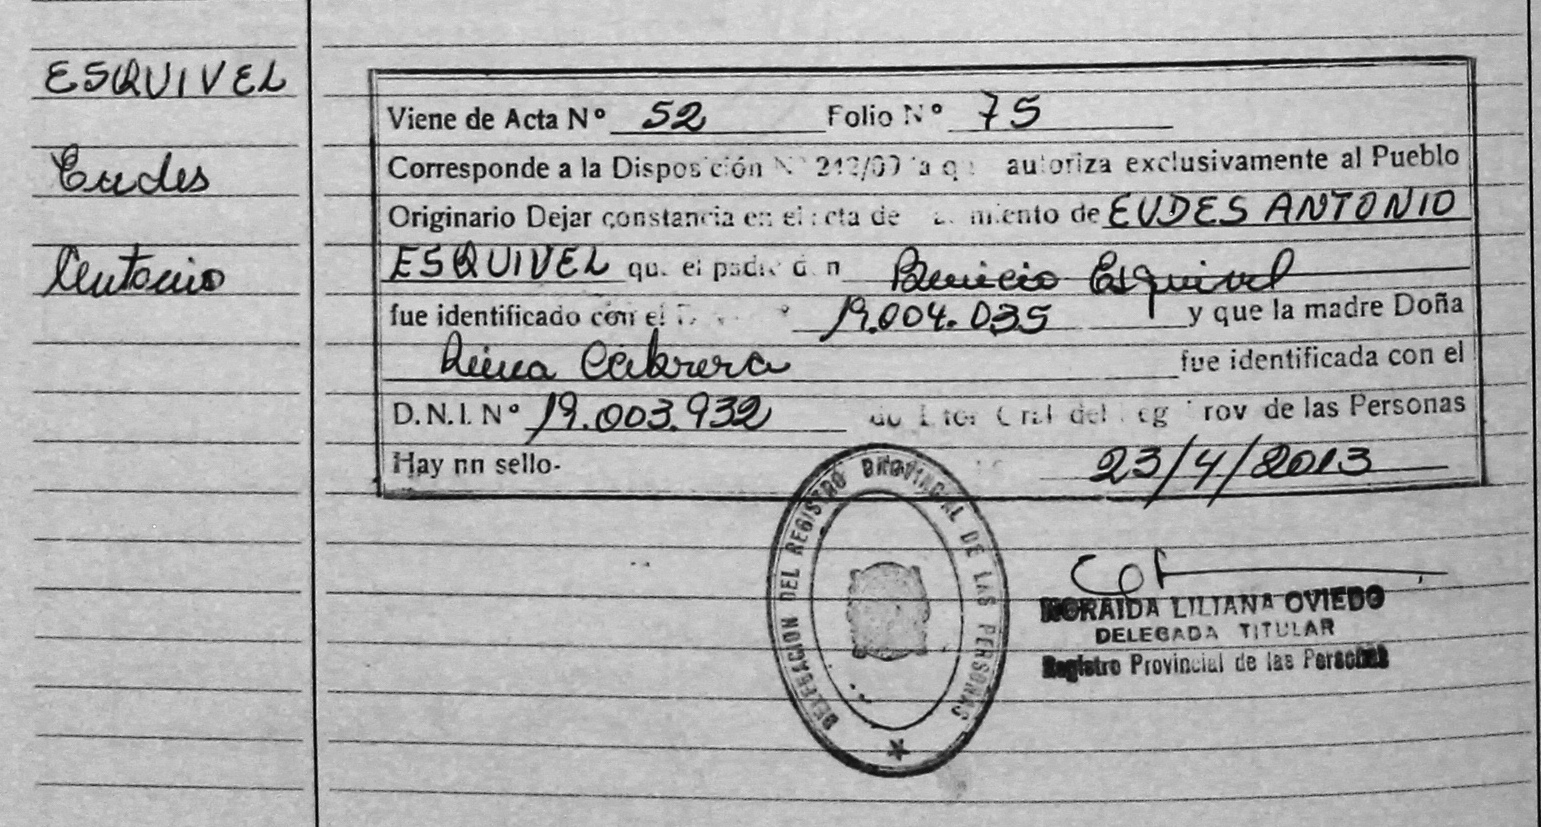 ESQUIVEL
Eudes
Antonio
Viene de Acta Nº 52 Folio Nº 75
Corresponde a la Disposición Nº autoriza exclusivamente al Pueblo
Originario Dejar constancia en el acta de EUDES ANTONIO
ESQUIVEL que el padre don Esquivel
fue identificado con el 19.004.035 y que la madre Doña
Cabrera fue identificada con el
D.N.I. Nº 19.003.932 de las Personas
Hay nn sello- 23/4/2013
DELEGACION DEL REGISTRO PROVINCIAL DE LAS PERSONAS
NORAIDA LILIANA OVIEDO
DELEGADA TITULAR
Registro Provincial de las Personas